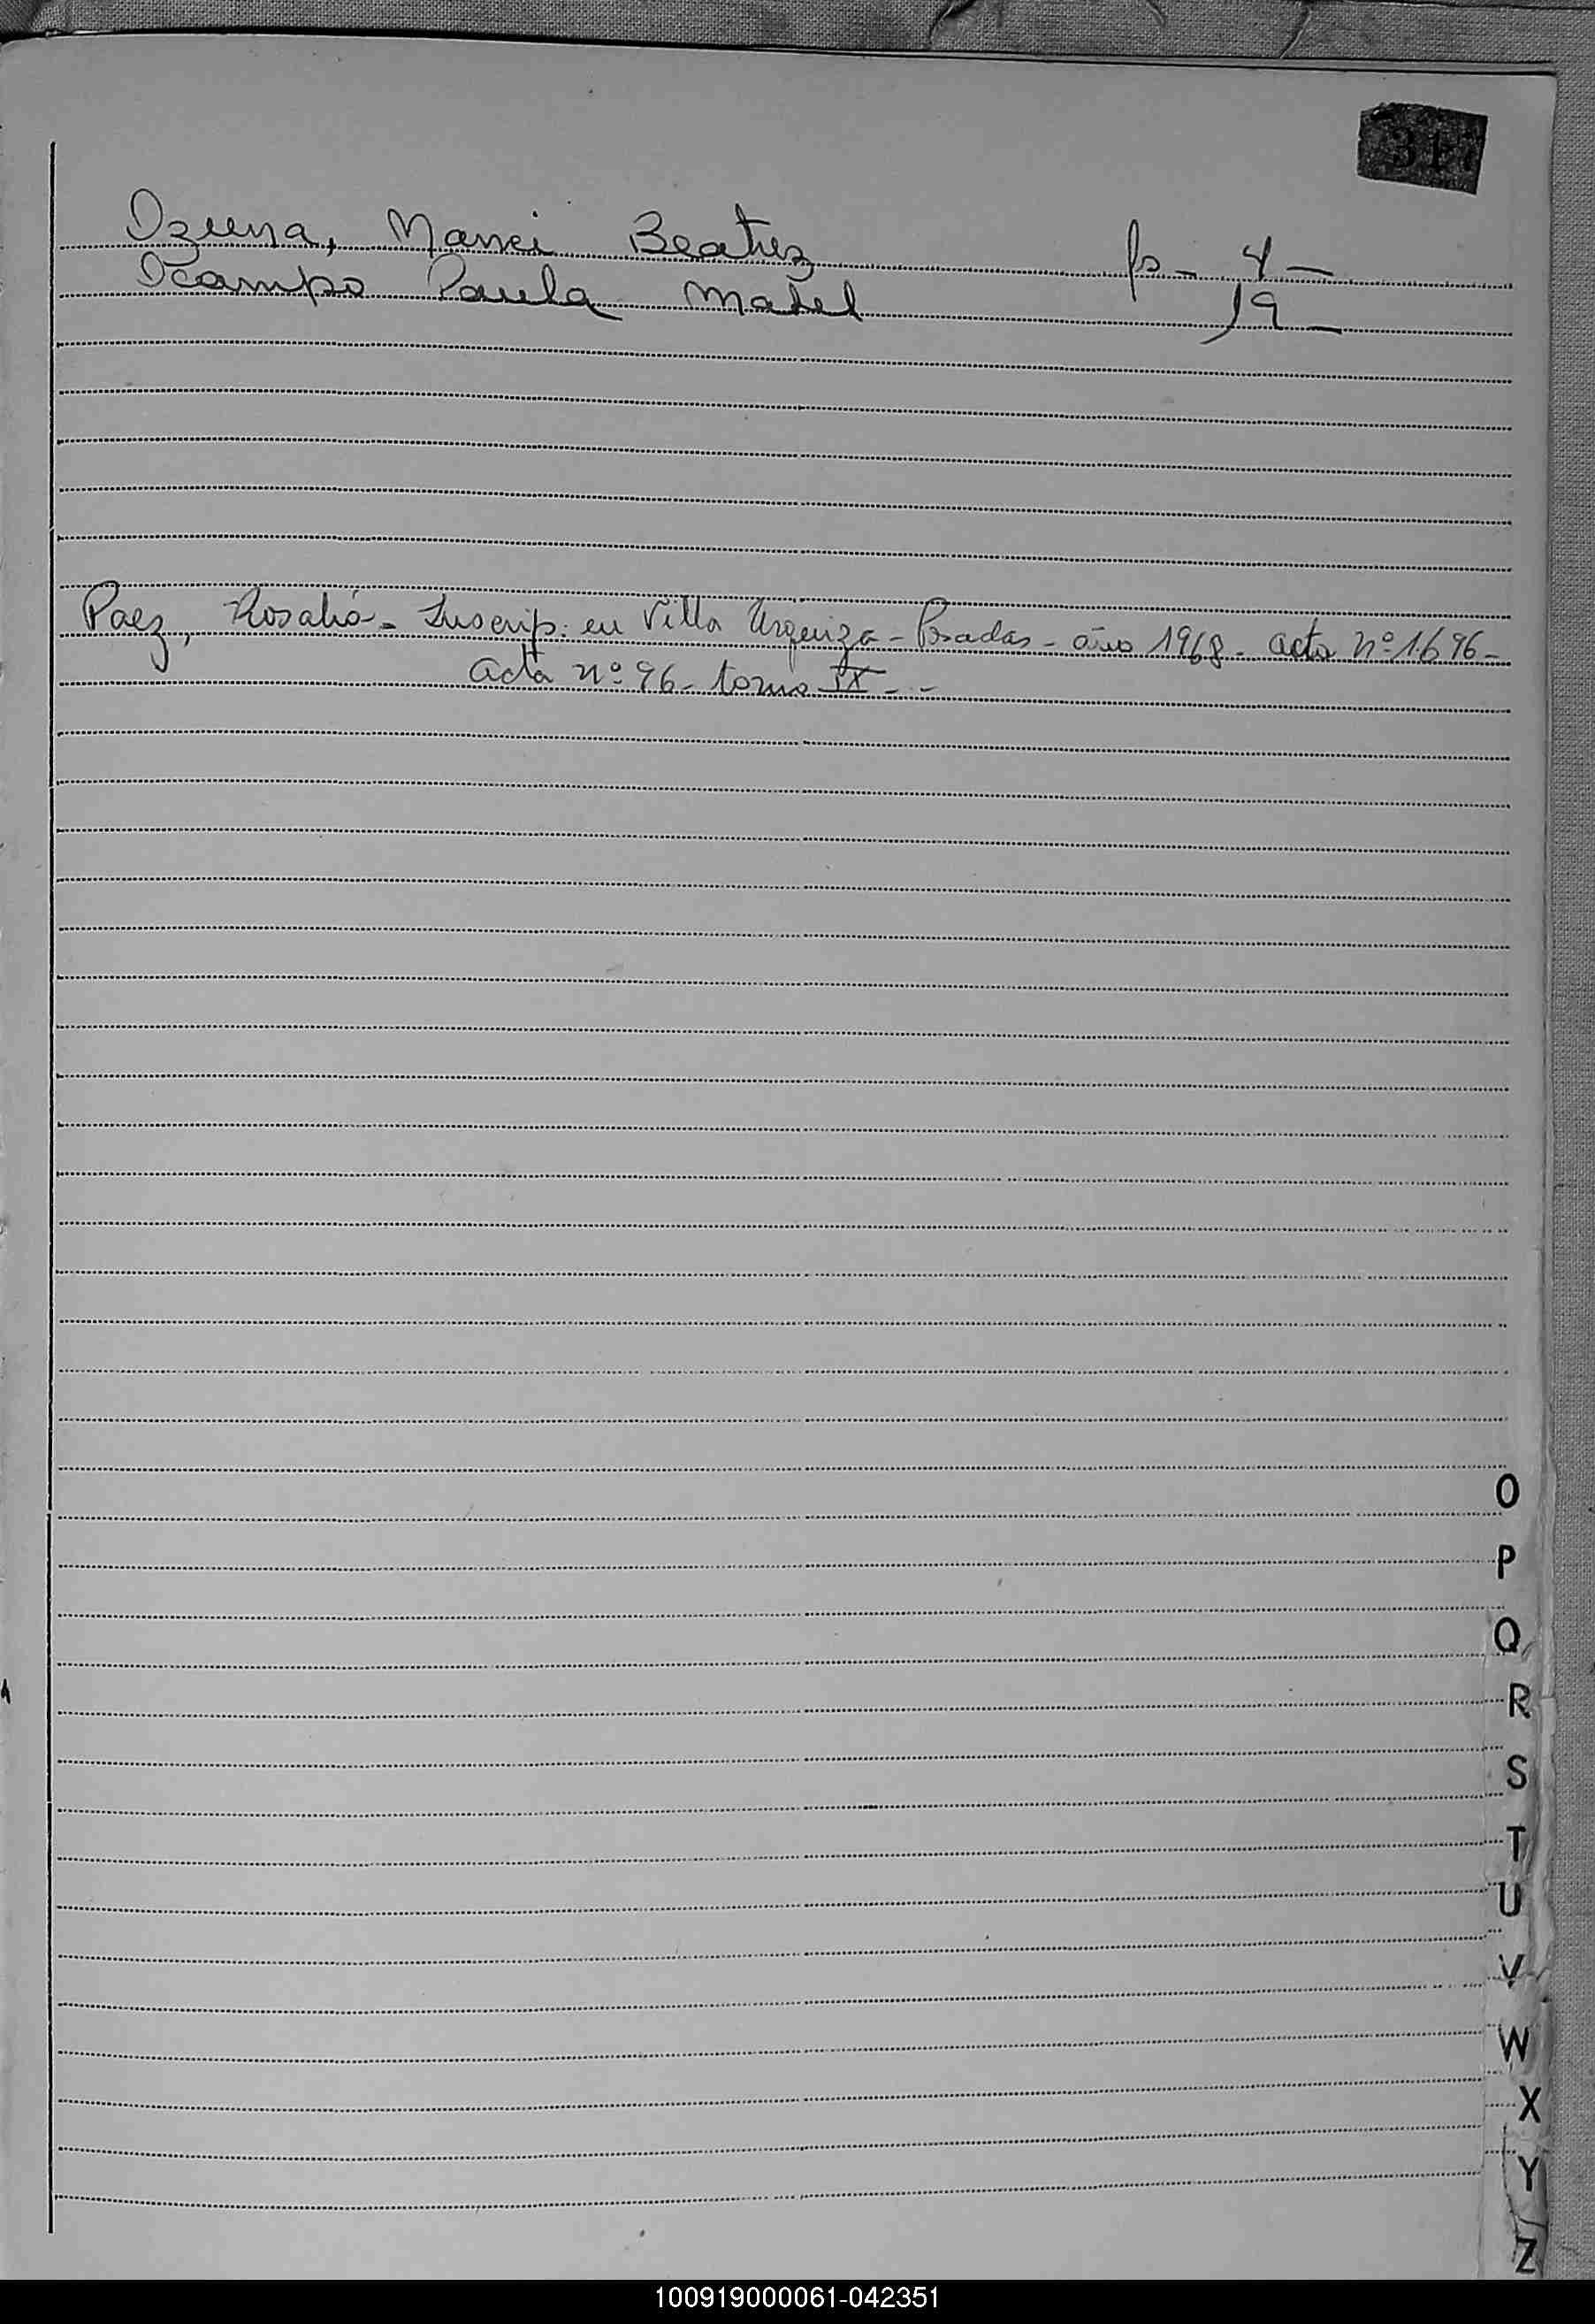 317
Ozuna, Manei Beatriz fs - 4 -
Ocampo Paula Mabel 19 -
Paez, Rosalia - Inscrip. en Villa Urquiza - Posadas - año 1968 - acta nº 1696 -
acta nº 96 - tomo IX - -
O
P
Q
R
S
T
U
V
W
X
Y
Z
100919000061-042351